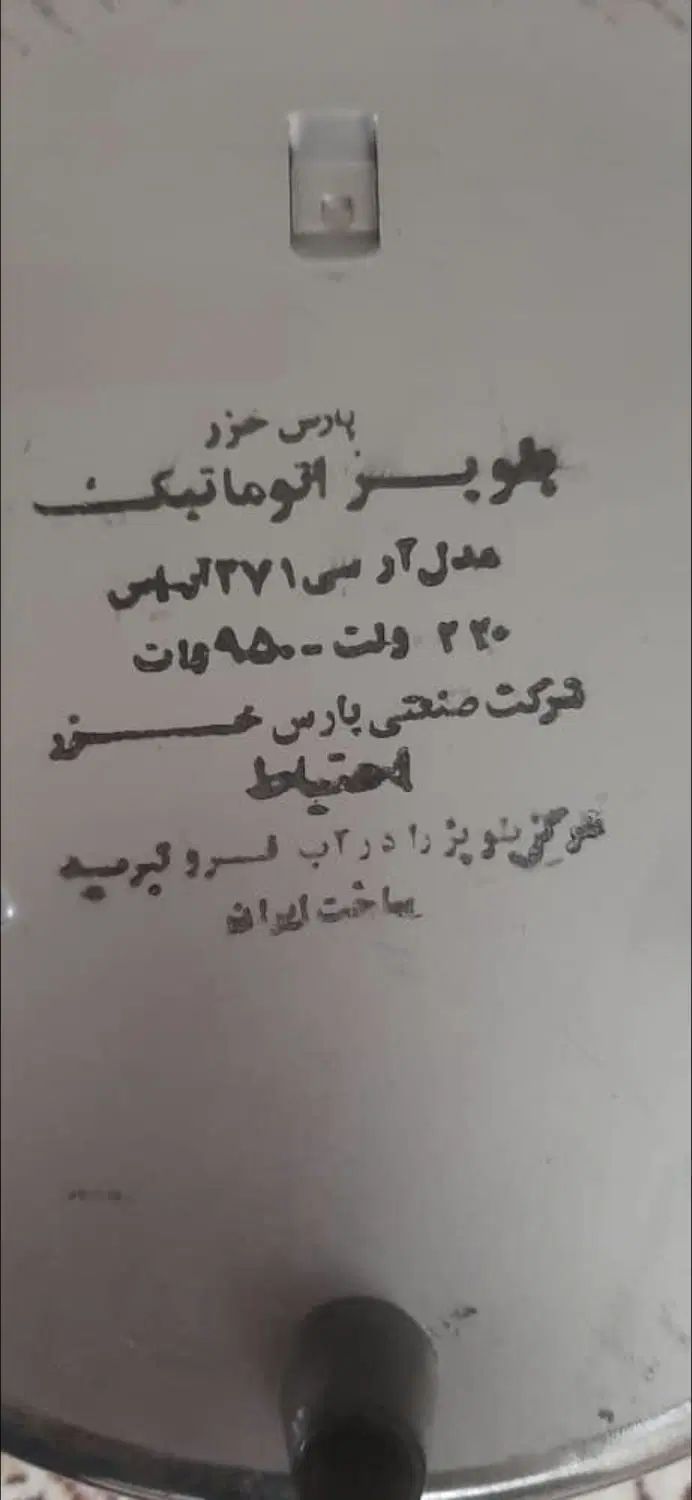 پارس خزر
پلوپز اتوماتیک
مدل آر سی ۲۷۱ تی اس
۲۲۰ ولت - ۹۵۰ وات
شرکت صنعتی پارس خزر
احتیاط
هرگز پلوپز را در آب فرو نبرید
ساخت ایران